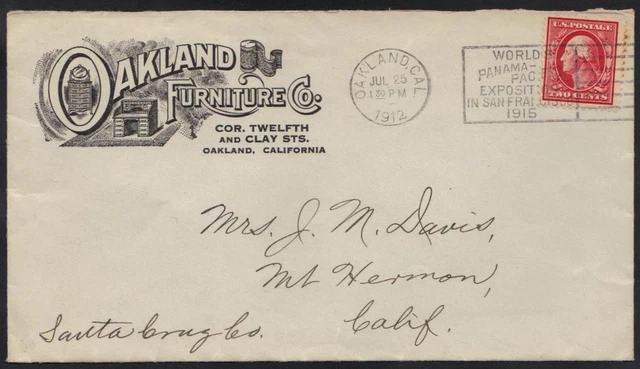 OAKLAND
FURNITURE CO.
COR. TWELFTH
AND CLAY STS.
OAKLAND, CALIFORNIA
OAKLAND, CAL.
JUL 25
1 30 PM
1912
WORLD
PANAMA-
PAC
EXPOSIT
IN SAN FRANCISCO
1915
U.S. POSTAGE
TWO CENTS
Mrs. J. M. Davis,
Mt Hermon,
Santa Cruz Co. Calif.